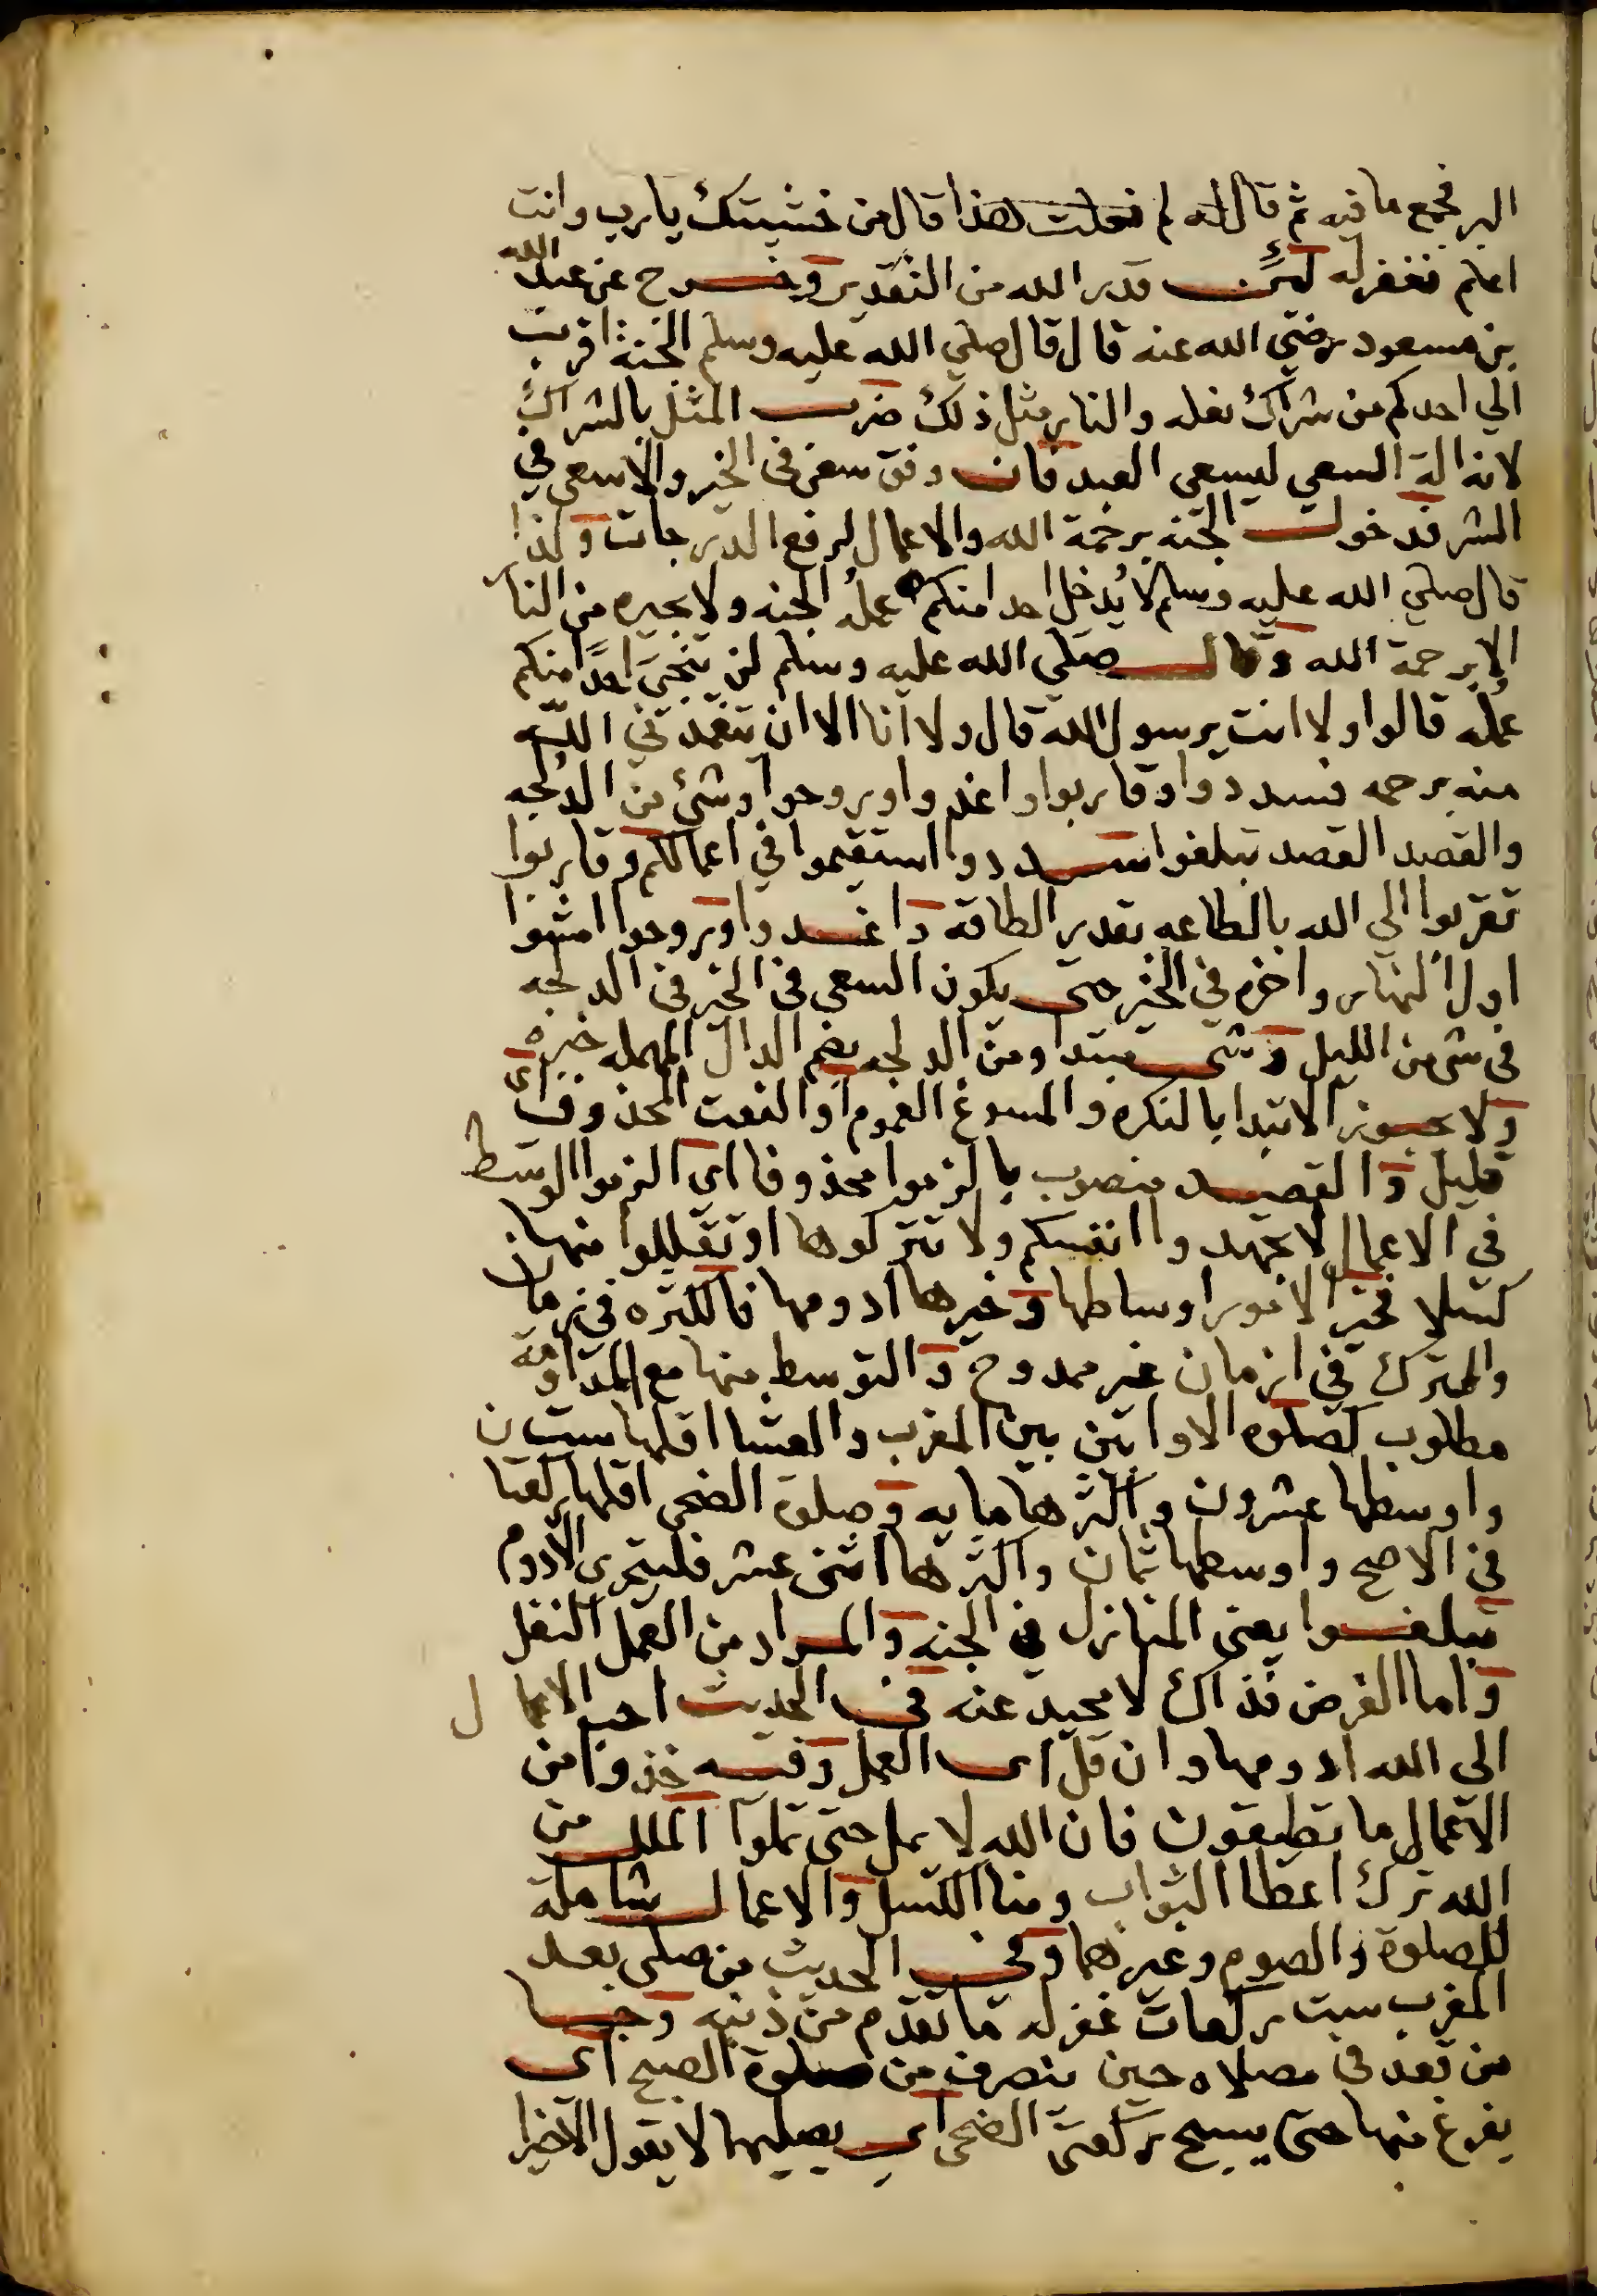 البر فجمع ما فيه ثم قال له لم فعلت هذا قال من خشيتك يا رب وانت
اعلم فغفر له لئن قدر الله من التقدير وخرج عن عبد الله
بن مسعود رضي الله عنه قال قال صلي الله عليه وسلم الجنة اقرب
الي احدكم من شراك نعله والنار مثل ذلك ضرب المثل بالشراك
لانه الة السعي ليسعي العبد فان وفق سعى في الخير والا سعى في
الشر فدخول الجنه برحمة الله والاعمال لرفع الدرجات ولذا
قال صلي الله عليه وسلم لا يُدخل احدا منكم عملُه الجنه ولا يجيره من النار
الا برحمة الله وقال صلي الله عليه وسلم لن ينجيَ احدًا منكم
عملُه قالوا ولا انت يرسول الله قال ولا انا الا ان يتغمدني الله
منه برحمه فسددوا وقاربوا واغدوا وروحوا وشئ من الدلجه
والقصد القصد تبلغوا سددوا استقيموا في اعمالكم وقاربوا
تقربوا الي الله بالطاعه بقدر الطاقه واغدوا وروحوا امشوا
اول النهار واخره في الخير حتى يكون السعى في الخير في الدلجه
في شي من الليل وشى مبتدا ومن الدلجه بضم الدال المهمله خبره
ولا يجوز الابتدا بالنكره والمسوغ العموم او النعت المحذوف اى
قليل والقصد منصوب بالزموا محذوفا اى الزموا الوسط
في الاعمال لا تجهدوا انفسكم ولا تتركوها او تقللوا منها
كسلا فخير الامور اوساطها وخيرها ادومها فالكثره في زمان
والترك في ازمان غير ممدوح والتوسط منها مع المداومة
مطلوب كصلوة الاوابين بين المغرب والعشا اقلها ست
واوسطها عشرون واكثرها مايه وصلوة الضحى اقلها ركعتان
في الاصح واوسطها ثمان واكثرها اثنى عشر فليتحرى الادوم
تبلغوا يعنى المنازل في الجنه والمراد من العمل النفل
واما الفرض فذاك لا محيد عنه في الحديث احب الاعمال
الى الله ادومها وان قل اى العمل وفيه خذوا من
الاعمال ما تطيقون فان الله لا يمل حتى تملوا الملل من
الله ترك اعطا الثواب ومنا الكسل والاعمال شاملة
للصلوة والصوم وغيرهما وفي الحديث من صلى بعد
المغرب ست ركعات غفر له ما تقدم من ذنبه وجا
من قعد في مصلاه حين ينصرف من صلوة الصبح اى
يفرغ منها حتى يسبح ركعتى الضحى اى يصليها لا يقول الا خيرا